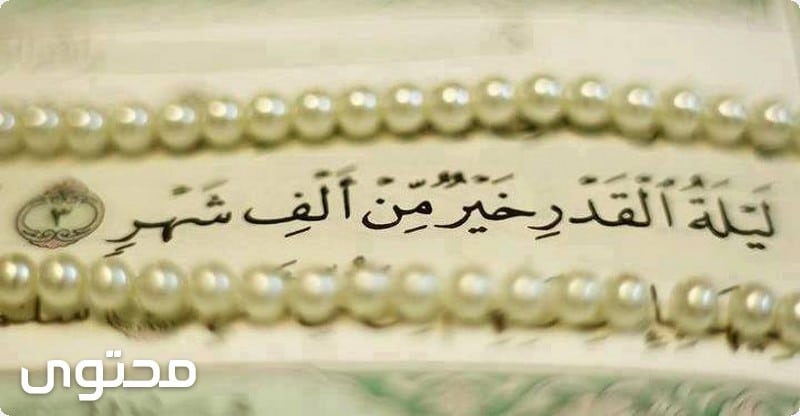 لَيْلَةُ ٱلْقَدْرِ خَيْرٌ مِّنْ أَلْفِ شَهْرٍ ٣
محتوى